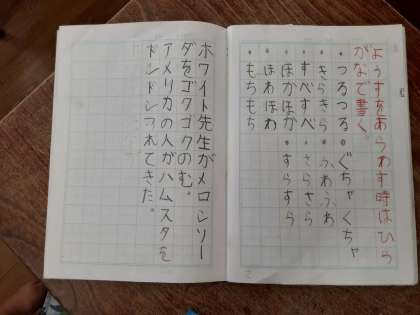 ようすをあらわす時はひら
がなで書く。
・つるつる ・ぐちゃぐちゃ
・きらきら ・ふわふわ
・すべすべ ・さらさら
・ほかほか ・すらすら
・ほわほわ
・もちもち
ホワイト先生がメロンソー
ダをゴクゴクのむ。
アメリカの人がハムスタを
ドンドンつれてきた。